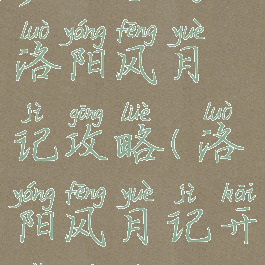 luò yáng fēng yuè
洛阳风月
jì gōng lüè luò
记攻略(洛
yáng fēng yuè jì kāi
阳风月记开